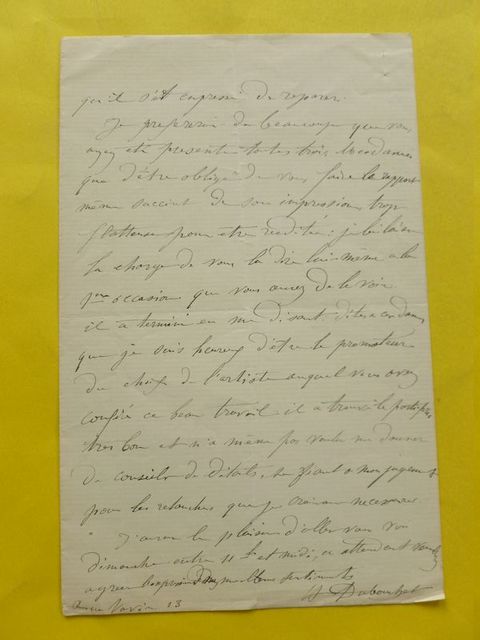 qu'il s'est empressé de reparer.
Je prefererais de beaucoup que vous
ayez été presentes toutes trois Mesdames
que d'être obligé de vous faire le rapport
même succint de son impression trop
flatteuse pour etre redite: je lui laisse
la charge de vous la dire lui même a la
1ere occasion que vous aurez de le voir
il a terminé en me disant, dites a ces dames
que je suis heureux d'être le promoteur
du choix de l'artiste auquel vous avez
confié ce beau travail il a trouvé le
très bon et n'a même pas voulu me donner
de conseils de détails, se fiant a mon jugement
pour les retouches que je croirai necessaires
J'aurai le plaisir d'aller vous voir
dimanche entre 11h et midi, en attendant veuillez
agreer l'expression de mes meilleurs sentiments
13